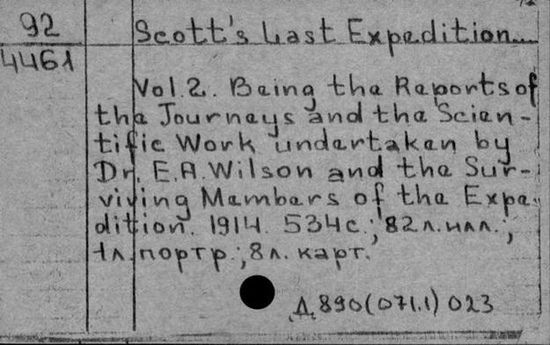 92 Scott's Last Expedition
4461
Vol. 2. Being the Reports of
the Journeys and the Scien-
tific Work undertaken by
Dr. E.A. Wilson and the Sur-
viving Members of the Expe-
dition. 1914. 534с.; 82л. илл.;
1л. портр.; 8л. карт.
Д 890(071.1) 023